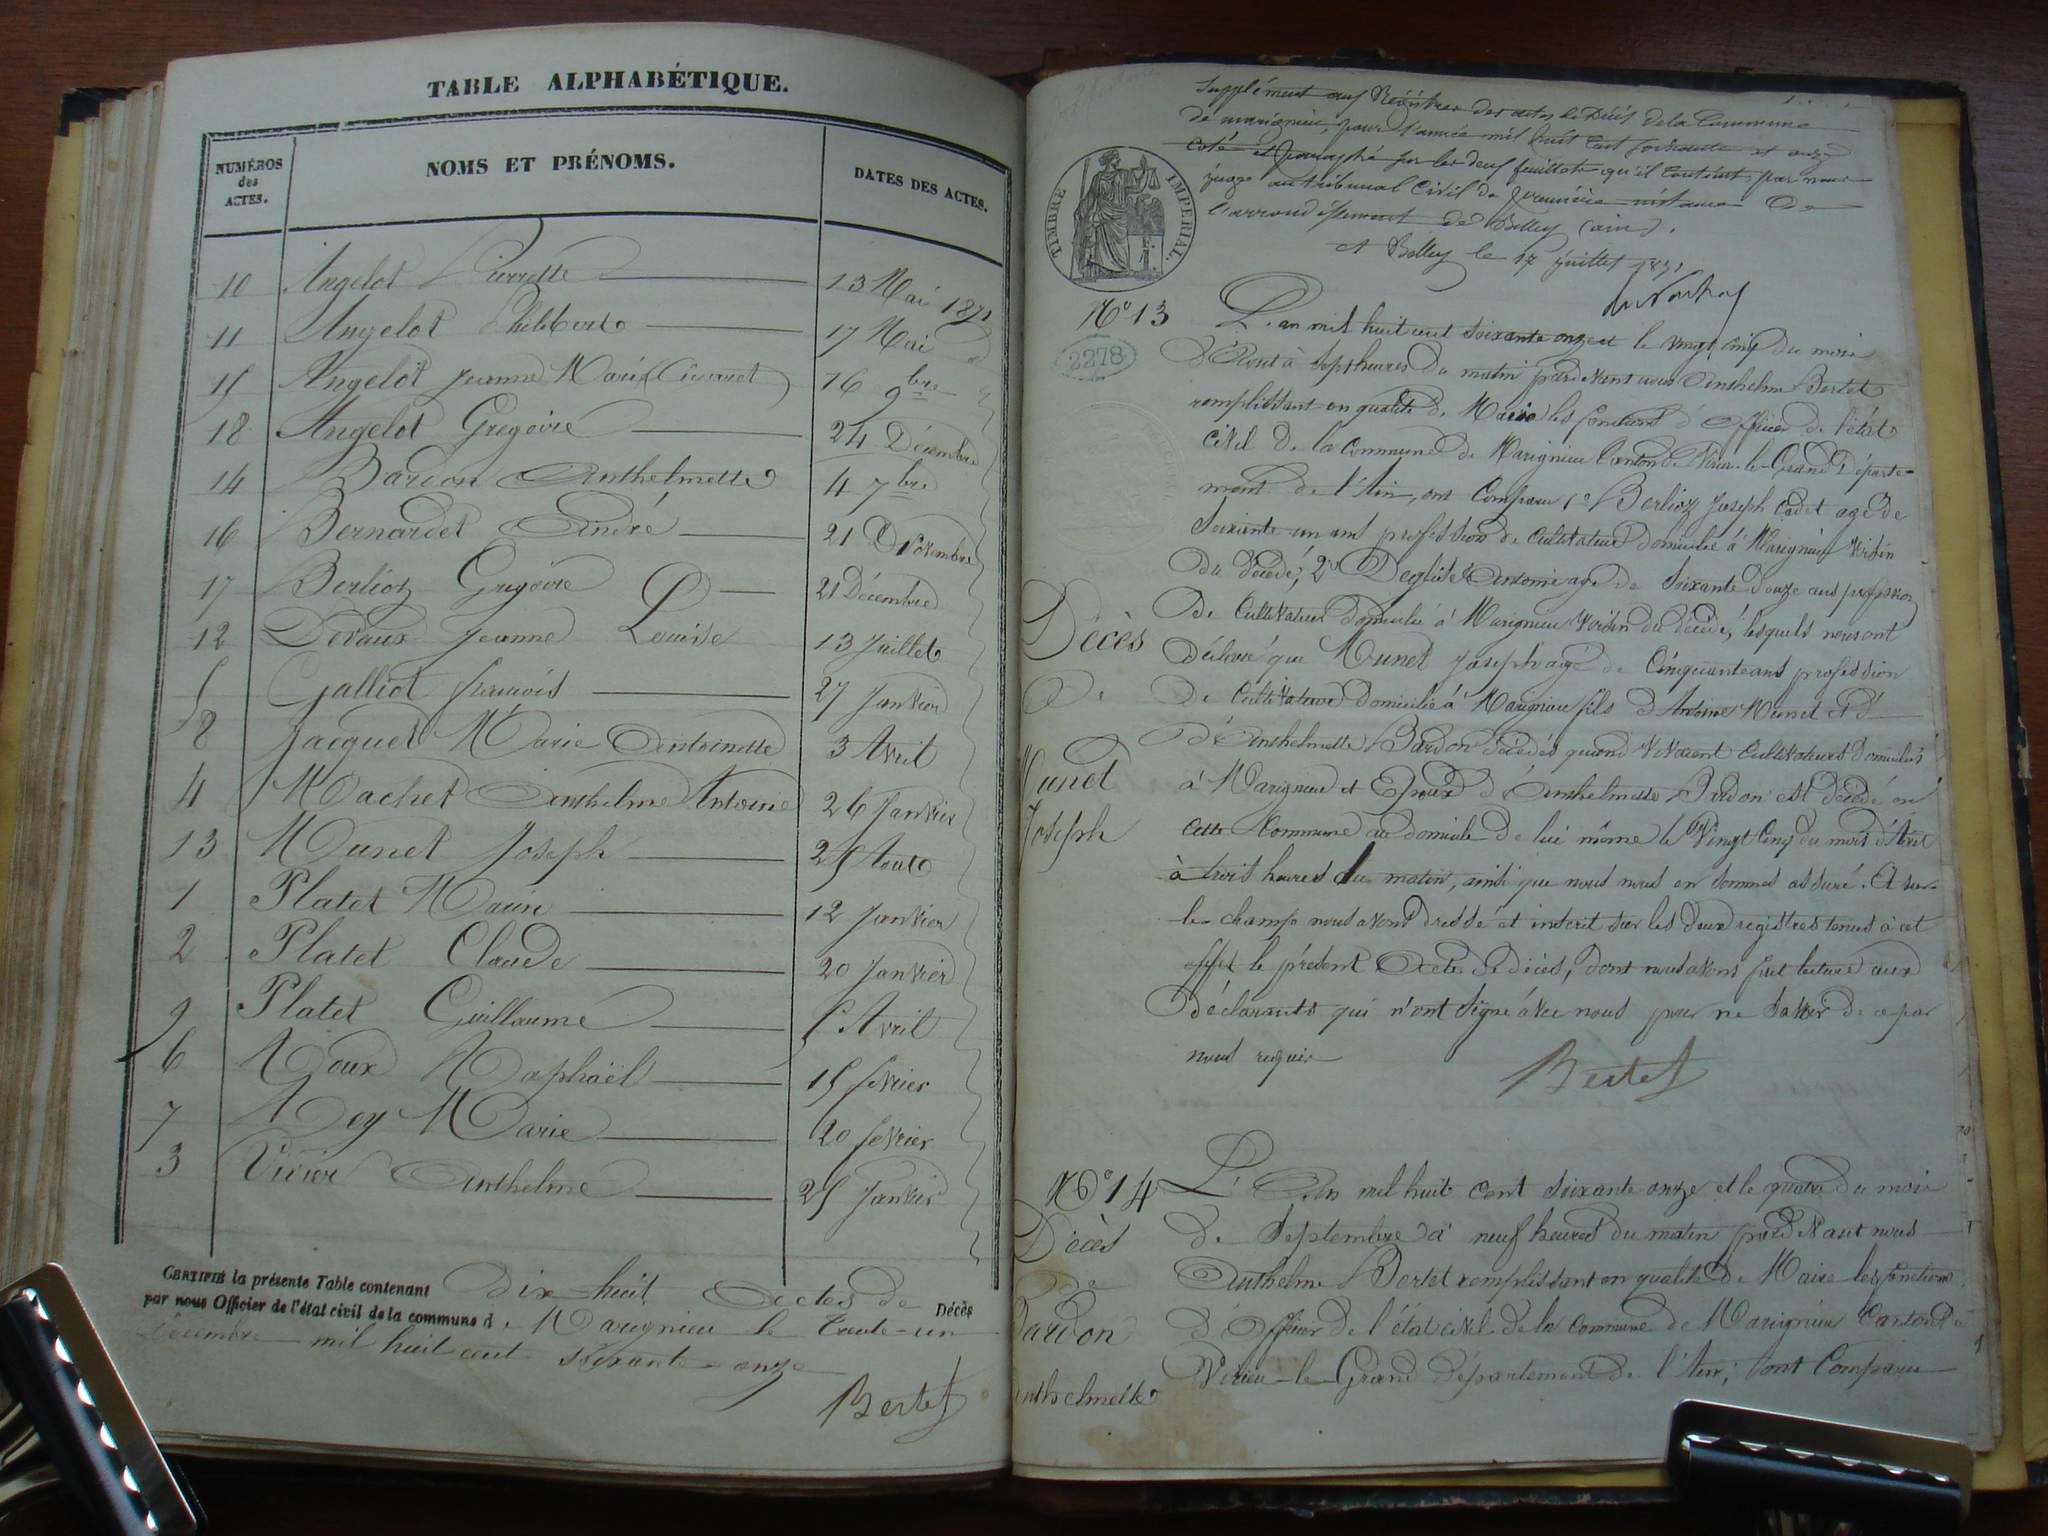 TABLE ALPHABÉTIQUE.
NUMÉROS des ACTES. NOMS ET PRÉNOMS. DATES DES ACTES.
10 Angelot Pierrette 13 Mai 1871
11 Angelot Philibert 17 Mai
15 Angelot Jeanne Marie 16 9bre
18 Angelot Gregoire 24 Décembre
14 Bardon Anthelmette 4 7bre
16 Bernardet André 21 Novembre
17 Berlioz Gregoire 21 Décembre
12 Devaux Jeanne Louise 13 Juillet
5 Galliot françois 27 Janvier
8 Jacquet Marie Antoinette 3 Avril
4 Machet Anthelme Antoine 26 Janvier
13 Munet Joseph 25 Aout
1 Platet Marin 12 Janvier
2 Platet Claude 20 Janvier
9 Platet Guillaume 5 Avril
6 Roux Raphaël 15 fevrier
7 Rey Marie 20 fevrier
3 Vivier Anthelme 25 Janvier
CERTIFIÉ la présente Table contenant dix huit Actes de Décès
par nous Officier de l'état civil de la commune de Marignieu le trente-un
Décembre mil huit cent soixante-onze
Bertet
Supplément aux Régistres des actes de Décès de la Commune
de marignieu, pour l'année mil huit cent soixante et onze
Coté et paraphé par les deux feuillets qu'il contient, par nous
juge au tribunal Civil de première instance de
l'arrondissement de Belley (ain).
A Belley le 17 juillet 1871
TIMBRE IMPERIAL.
2278
N° 13
Décès
De
Munet
Joseph
L'an mil huit cent soixante onze et le vingt cinq du mois
d'Aout à sept heures du matin pardevant nous Anthelme Bertet
remplissant en qualité de Maire les fonctions d'officier de l'état
civil de la commune de Marignieu Canton de Virieu-le-Grand Départe-
ment de l'Ain, ont Comparu 1° Berlioz Joseph Cadet agé de
Soixante un ans profession de cultivateur domicilié à Marignieu voisin
du décédé; 2° Antoine agé de soixante douze ans profession
de Cultivateur domicilié à Marignieu voisin du décédé, lesquels nous ont
déclaré que Munet Joseph agé de Cinquante ans profession
de Cultivateur domicilié à Marignieu fils d'Antoine Munet et d
d'Anthelmette Bardon décédés quand vivaient Cultivateurs domiciliés
à Marignieu et Epoux d'Anthelmette Bardon est décédé en
cette Commune au domicile de lui même le Vingt Cinq du mois d'Aout
à trois heures du matin, ainsi que nous nous en sommes assuré. Et sur-
le-champ nous avons dressé et inscrit sur les deux registres tenus à cet
effet le présent Acte de décès, dont nous avons fait lecture aux
déclarants qui n'ont signé avec nous pour ne savoir de ce par
nous requis
Bertet
N° 14
Décès
de
Bardon
Anthelmette
L'An mil huit cent soixante onze et le quatre du mois
de Septembre à neuf heures du matin pardevant nous
Anthelme Bertet remplissant en qualité de Maire les fonctions
d'officier de l'état civil de la commune de Marignieu Canton de
Virieu-le-Grand département de l'Ain; ont Comparu